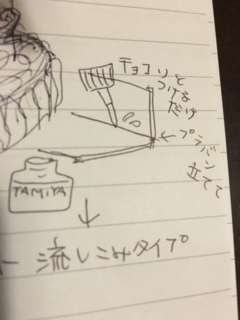 チョコッと
つけるだけ
プラバン
立てて
TAMIYA
流しこみタイプ